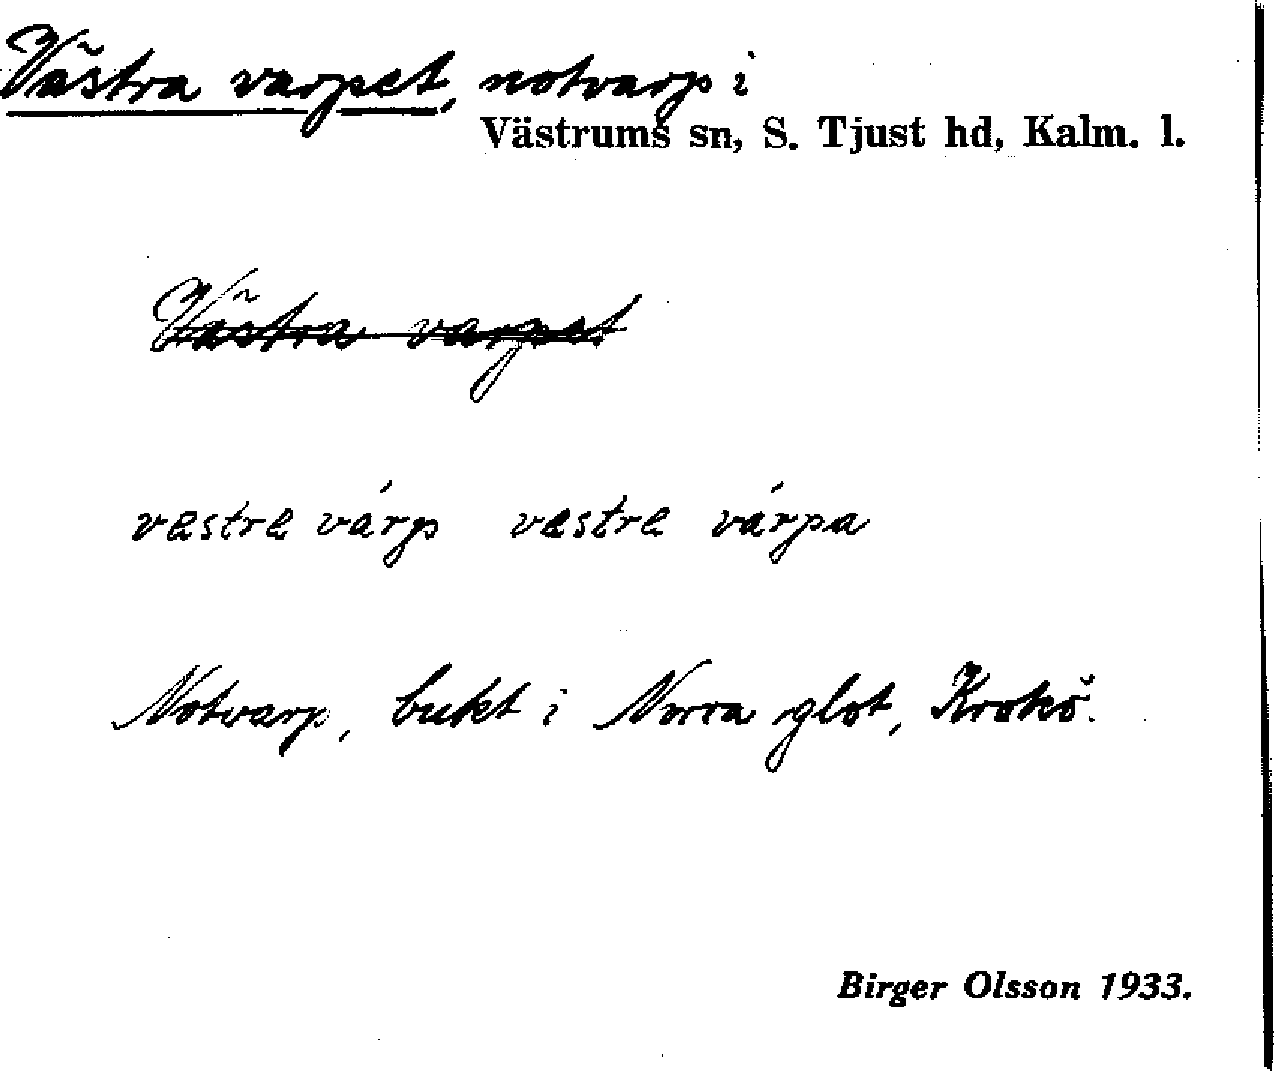 Västra varpet, notvarp i
Västrums sn, S. Tjust hd, Kalm. l.
Västra varpet
vestre várp vestre várpa
Notvarp, bukt i Norra glot, Krokö.
Birger Olsson 1933.